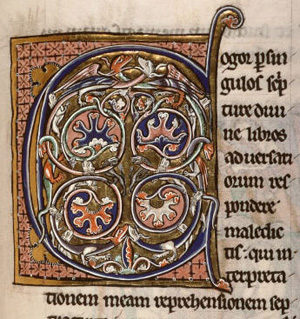 Cogor p̲ sin
gulos scp̲
ture diui
ne libros
aduersari
orum res
pondere
maledic
tis: qui in
terpreta
tionem meam reprehensionem sep